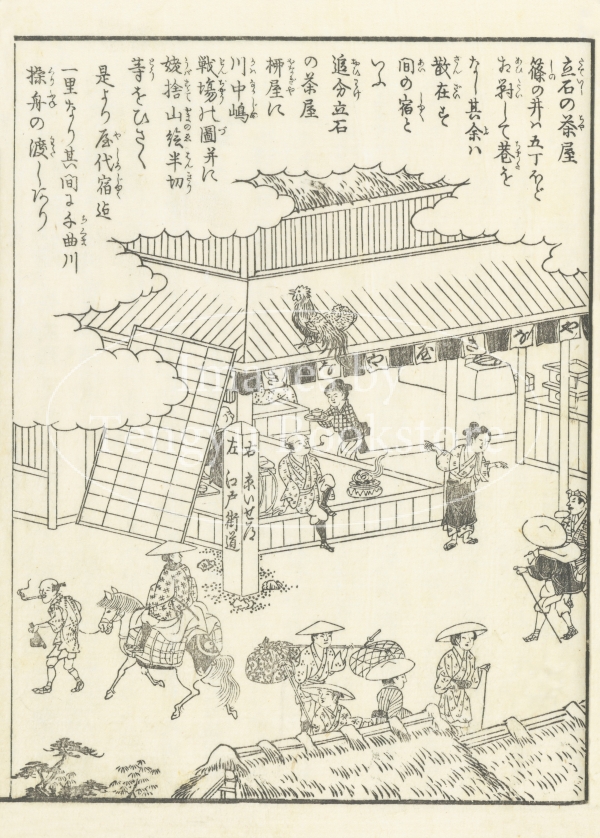 立石の茶屋
篠の井ハ五丁ほど
お対して巷を
なし其余ハ
散在す
間の宿と
いふ
追分立石
の茶屋
柳屋に
川中嶋
戦場の圖并に
姨捨山絵半切
等をひさく
是より屋代宿迄
一里なり其間に千曲川
操舟の渡しあり
やなぎや
右 京いせ道
左 江戸街道
Image by
Tengyu Bookstore